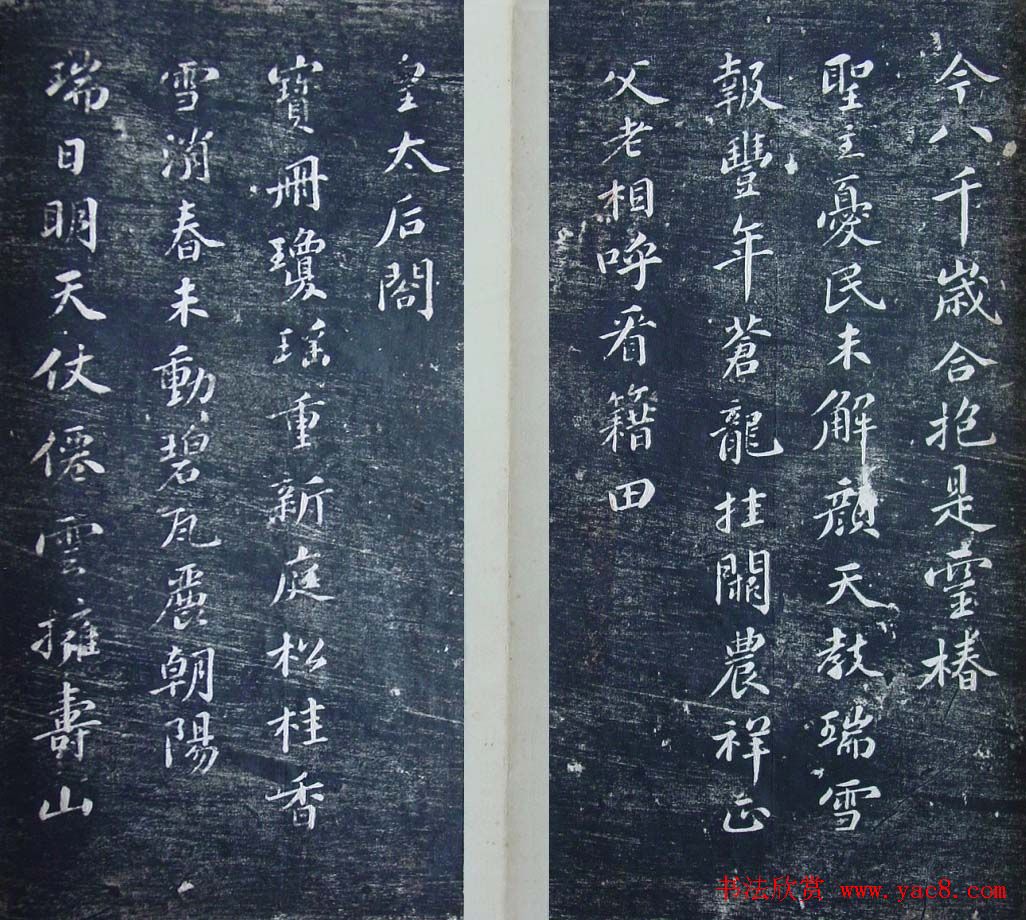 今八千歲合抱是靈椿
聖主憂民未解顏天教瑞雪
報豐年蒼龍挂闕農祥正
父老相呼看籍田
皇太后閣
寶冊瓊瑤重新庭松桂香
雪消春未動碧瓦麗朝陽
瑞日明天仗僊雲擁壽山
书法欣赏 www.yac8.com